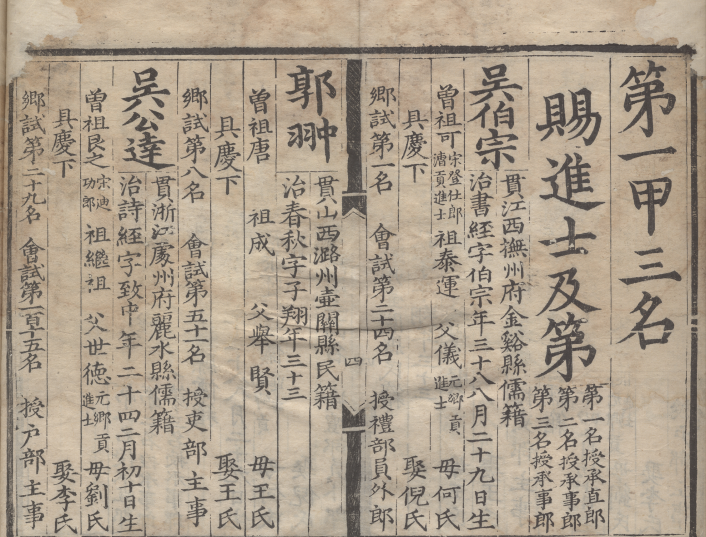 第一甲三名
賜進士及第
第一名授承直郎
第二名授承事郎
第三名授承事郎
吳伯宗
貫江西撫州府金谿縣儒籍
治書經字伯宗年三十八八月二十九日生
曾祖可宗登仕郎漕貢進士 祖泰運 父儀元鄉貢進士 母何氏
具慶下 娶倪氏
鄉試第一名 會試第二十四名 授禮部員外郎
四
郭翀
貫山西潞州壺關縣民籍
治春秋字子翔年三十三
曾祖唐 祖成 父舉賢 母王氏
具慶下 娶王氏
鄉試第八名 會試第五十一名 授吏部主事
吳公達
貫浙江處州府麗水縣儒籍
治詩經字致中年二十四二月初十日生
曾祖良之宋迪功郎 祖繼祖 父世德元鄉貢進士 母劉氏
具慶下 娶李氏
鄉試第二十九名 會試第一百十五名 授户部主事